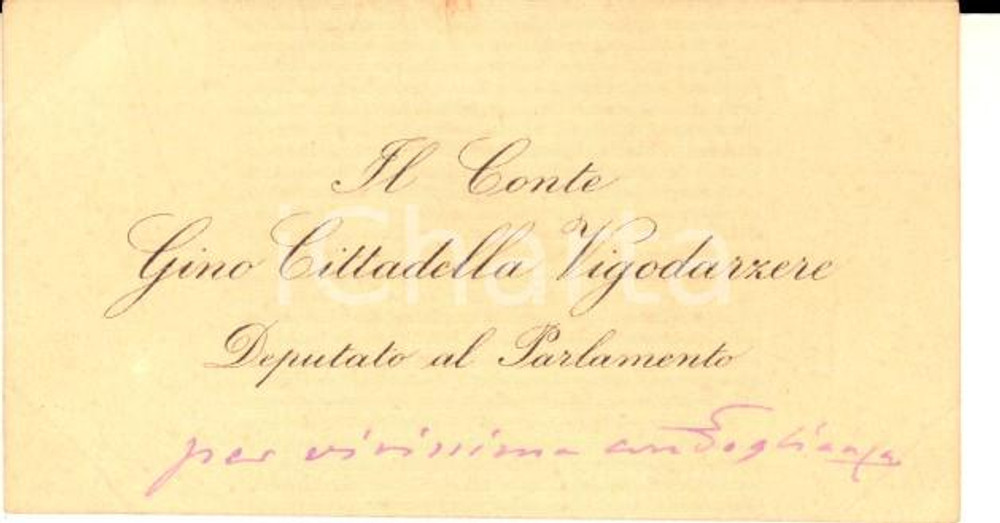 Il Conte
Gino Cittadella Vigodarzere
Deputato al Parlamento
per vivissime condoglianze
iCharta